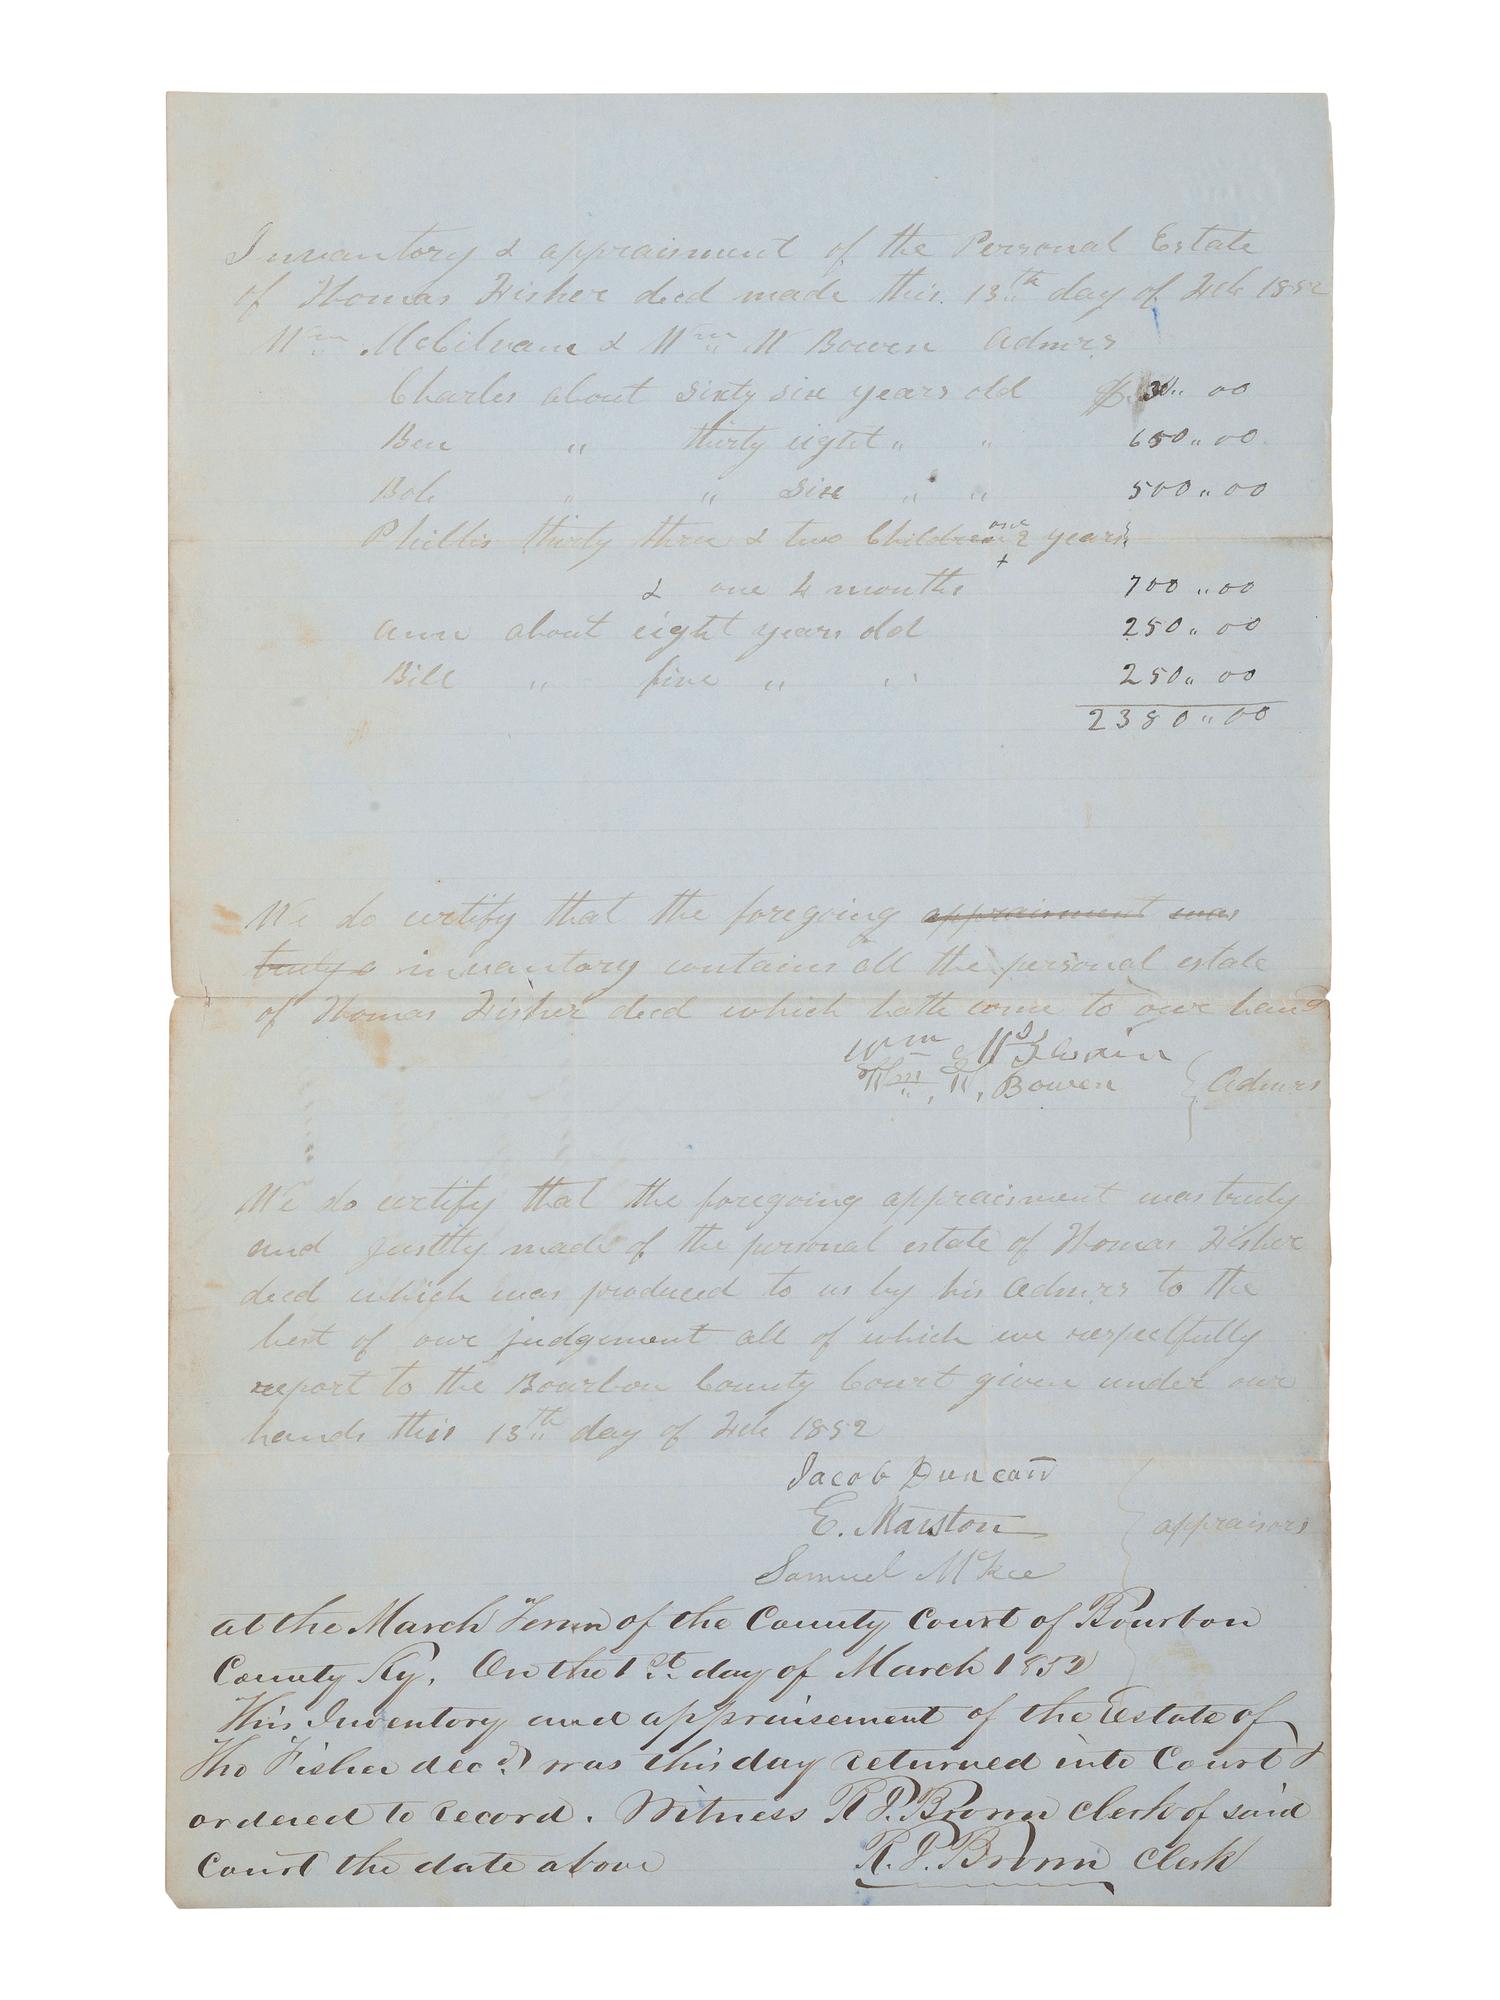 Invantory & appraisment of the Personal Estate
of Thomas Fisher decd made this 13th day of Feb 1852
Wm McCilvain & Wm W Bowen Admrs
Charles about sixty six years old $ 30 " 00
Ben " thirty eight " " 650 " 00
Bob " " six " " 500 " 00
Phillis thirty three & two Children one 2 years
& one 4 months 700 " 00
Ann about eight years old 250 " 00
Bill " five " " 250 " 00
2380 " 00
We do certify that the foregoing appraisment was
truly a invantory contains all the personal estate
of Thomas Fisher decd which hath come to our hand
Wm McIlvain
Wm. W. Bowen } Admrs
We do certify that the foregoing appraisment was truly
and justly made of the personal estate of Thomas Fisher
decd which was produced to us by his Admrs to the
best of our judgement all of which we respectfully
report to the Bourbon County Court given under our
hands this 13th day of Feb 1852
Jacob Duncan
E. Marston } appraisors
Samuel McKee
at the March Term of the County Court of Bourbon
County Ky. On the 1st day of March 1852
This Inventory and appraisement of the Estate of
Tho Fisher decd was this day returned into Court &
ordered to record. Witness R. J. Brown clerk of said
Court the date above R. J. Brown Clerk